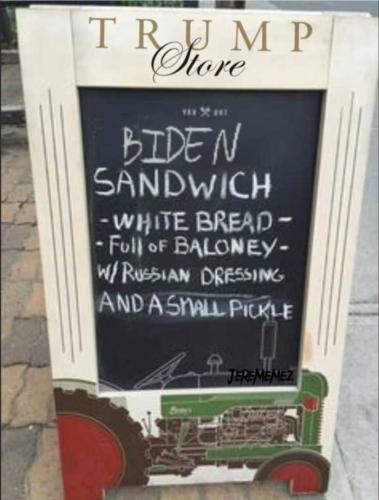 TRUMP
Store
BIDEN
SANDWICH
- WHITE BREAD -
- Full OF BALONEY -
W/ RUSSIAN DRESSING
AND A SMALL PICKLE
JEREMEMEZ